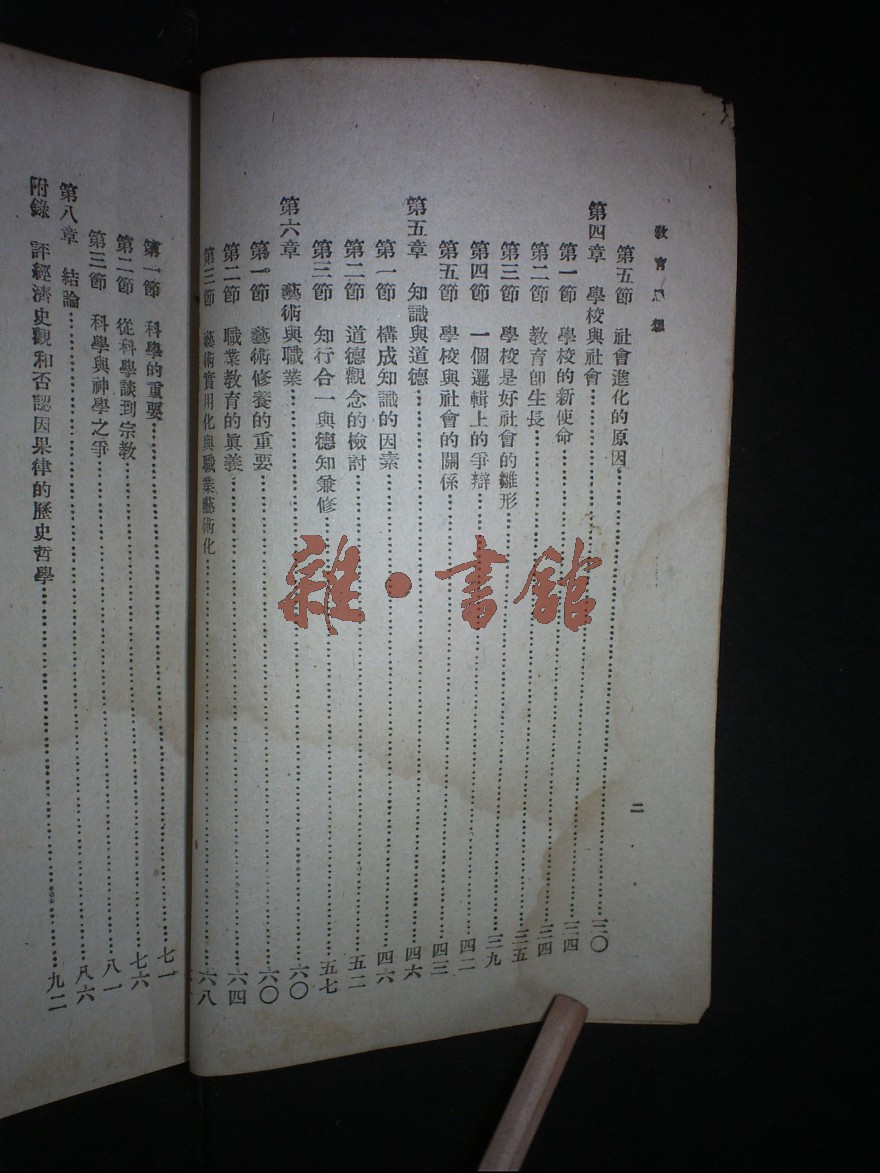 教育思想
二
第五節 社會進化的原因……三〇
第四章 學校與社會……三四
第一節 學校的新使命……三四
第二節 教育卽生長……三五
第三節 學校是好社會的雛形……三九
第四節 一個邏輯上的爭辯……四二
第五節 學校與社會的關係……四三
第五章 知識與道德……四六
第一節 構成知識的因素……四六
第二節 道德觀念的檢討……五二
第三節 知行合一與德知兼修……五七
第六章 藝術與職業……六〇
第一節 藝術修養的重要……六〇
第二節 職業教育的眞義……六四
第三節 藝術實用化與職業藝術化……六八
第一節 科學的重要……七一
第二節 從科學談到宗教……七六
第三節 科學與神學之爭……八一
第八章 結論……八六
附錄 評經濟史觀和否認因果律的歷史哲學……九二
雜·書館